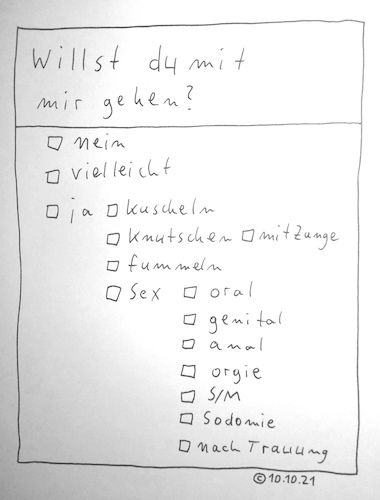 Willst du mit
mir gehen?
nein
vielleicht
ja kuscheln
knutschen mit Zunge
fummeln
Sex oral
genital
anal
orgie
S/M
Sodomie
nach Trauung
© 10.10.21